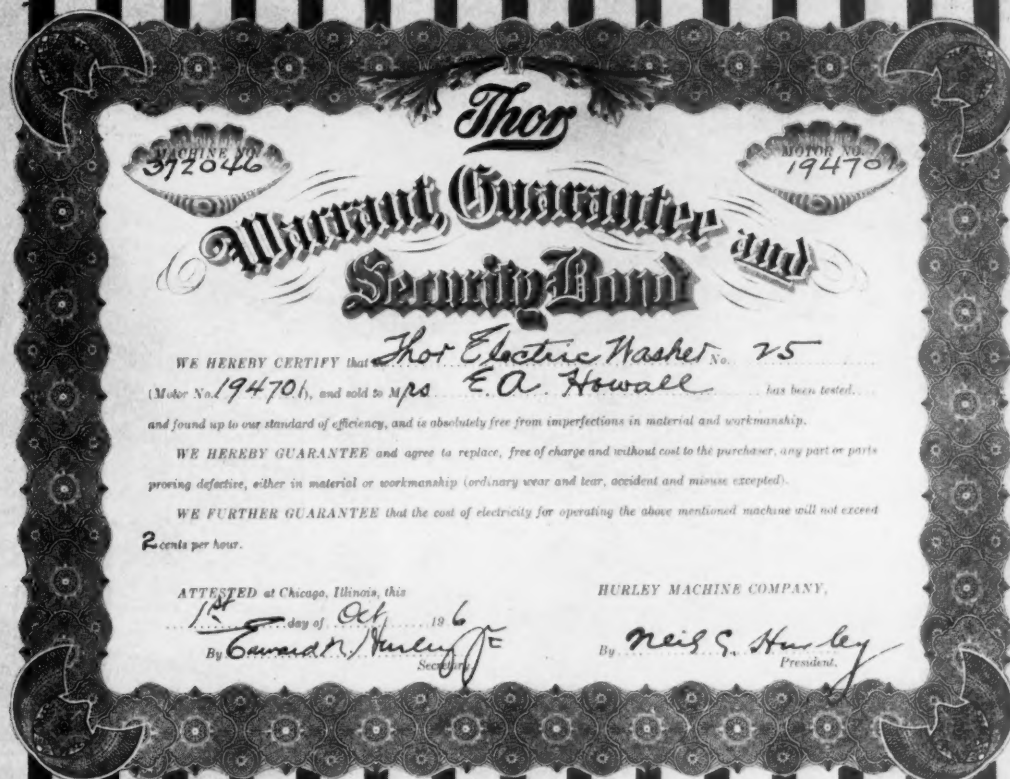 Thor
MACHINE NO.
372046
MOTOR NO.
194701
Warrant, Guarantee and
Security Bond
WE HEREBY CERTIFY that Thor Electric Washer No. 25
(Motor No. 194701), and sold to Mrs E. A. Howall has been tested
and found up to our standard of efficiency, and is absolutely free from imperfections in material and workmanship.
WE HEREBY GUARANTEE and agree to replace, free of charge and without cost to the purchaser, any part or parts
proving defective, either in material or workmanship (ordinary wear and tear, accident and misuse excepted).
WE FURTHER GUARANTEE that the cost of electricity for operating the above mentioned machine will not exceed
2 cents per hour.
ATTESTED at Chicago, Illinois, this
1st day of Oct 196
By Edward N. Hurley Jr
Secretary.
HURLEY MACHINE COMPANY,
By Neil C. Hurley
President.